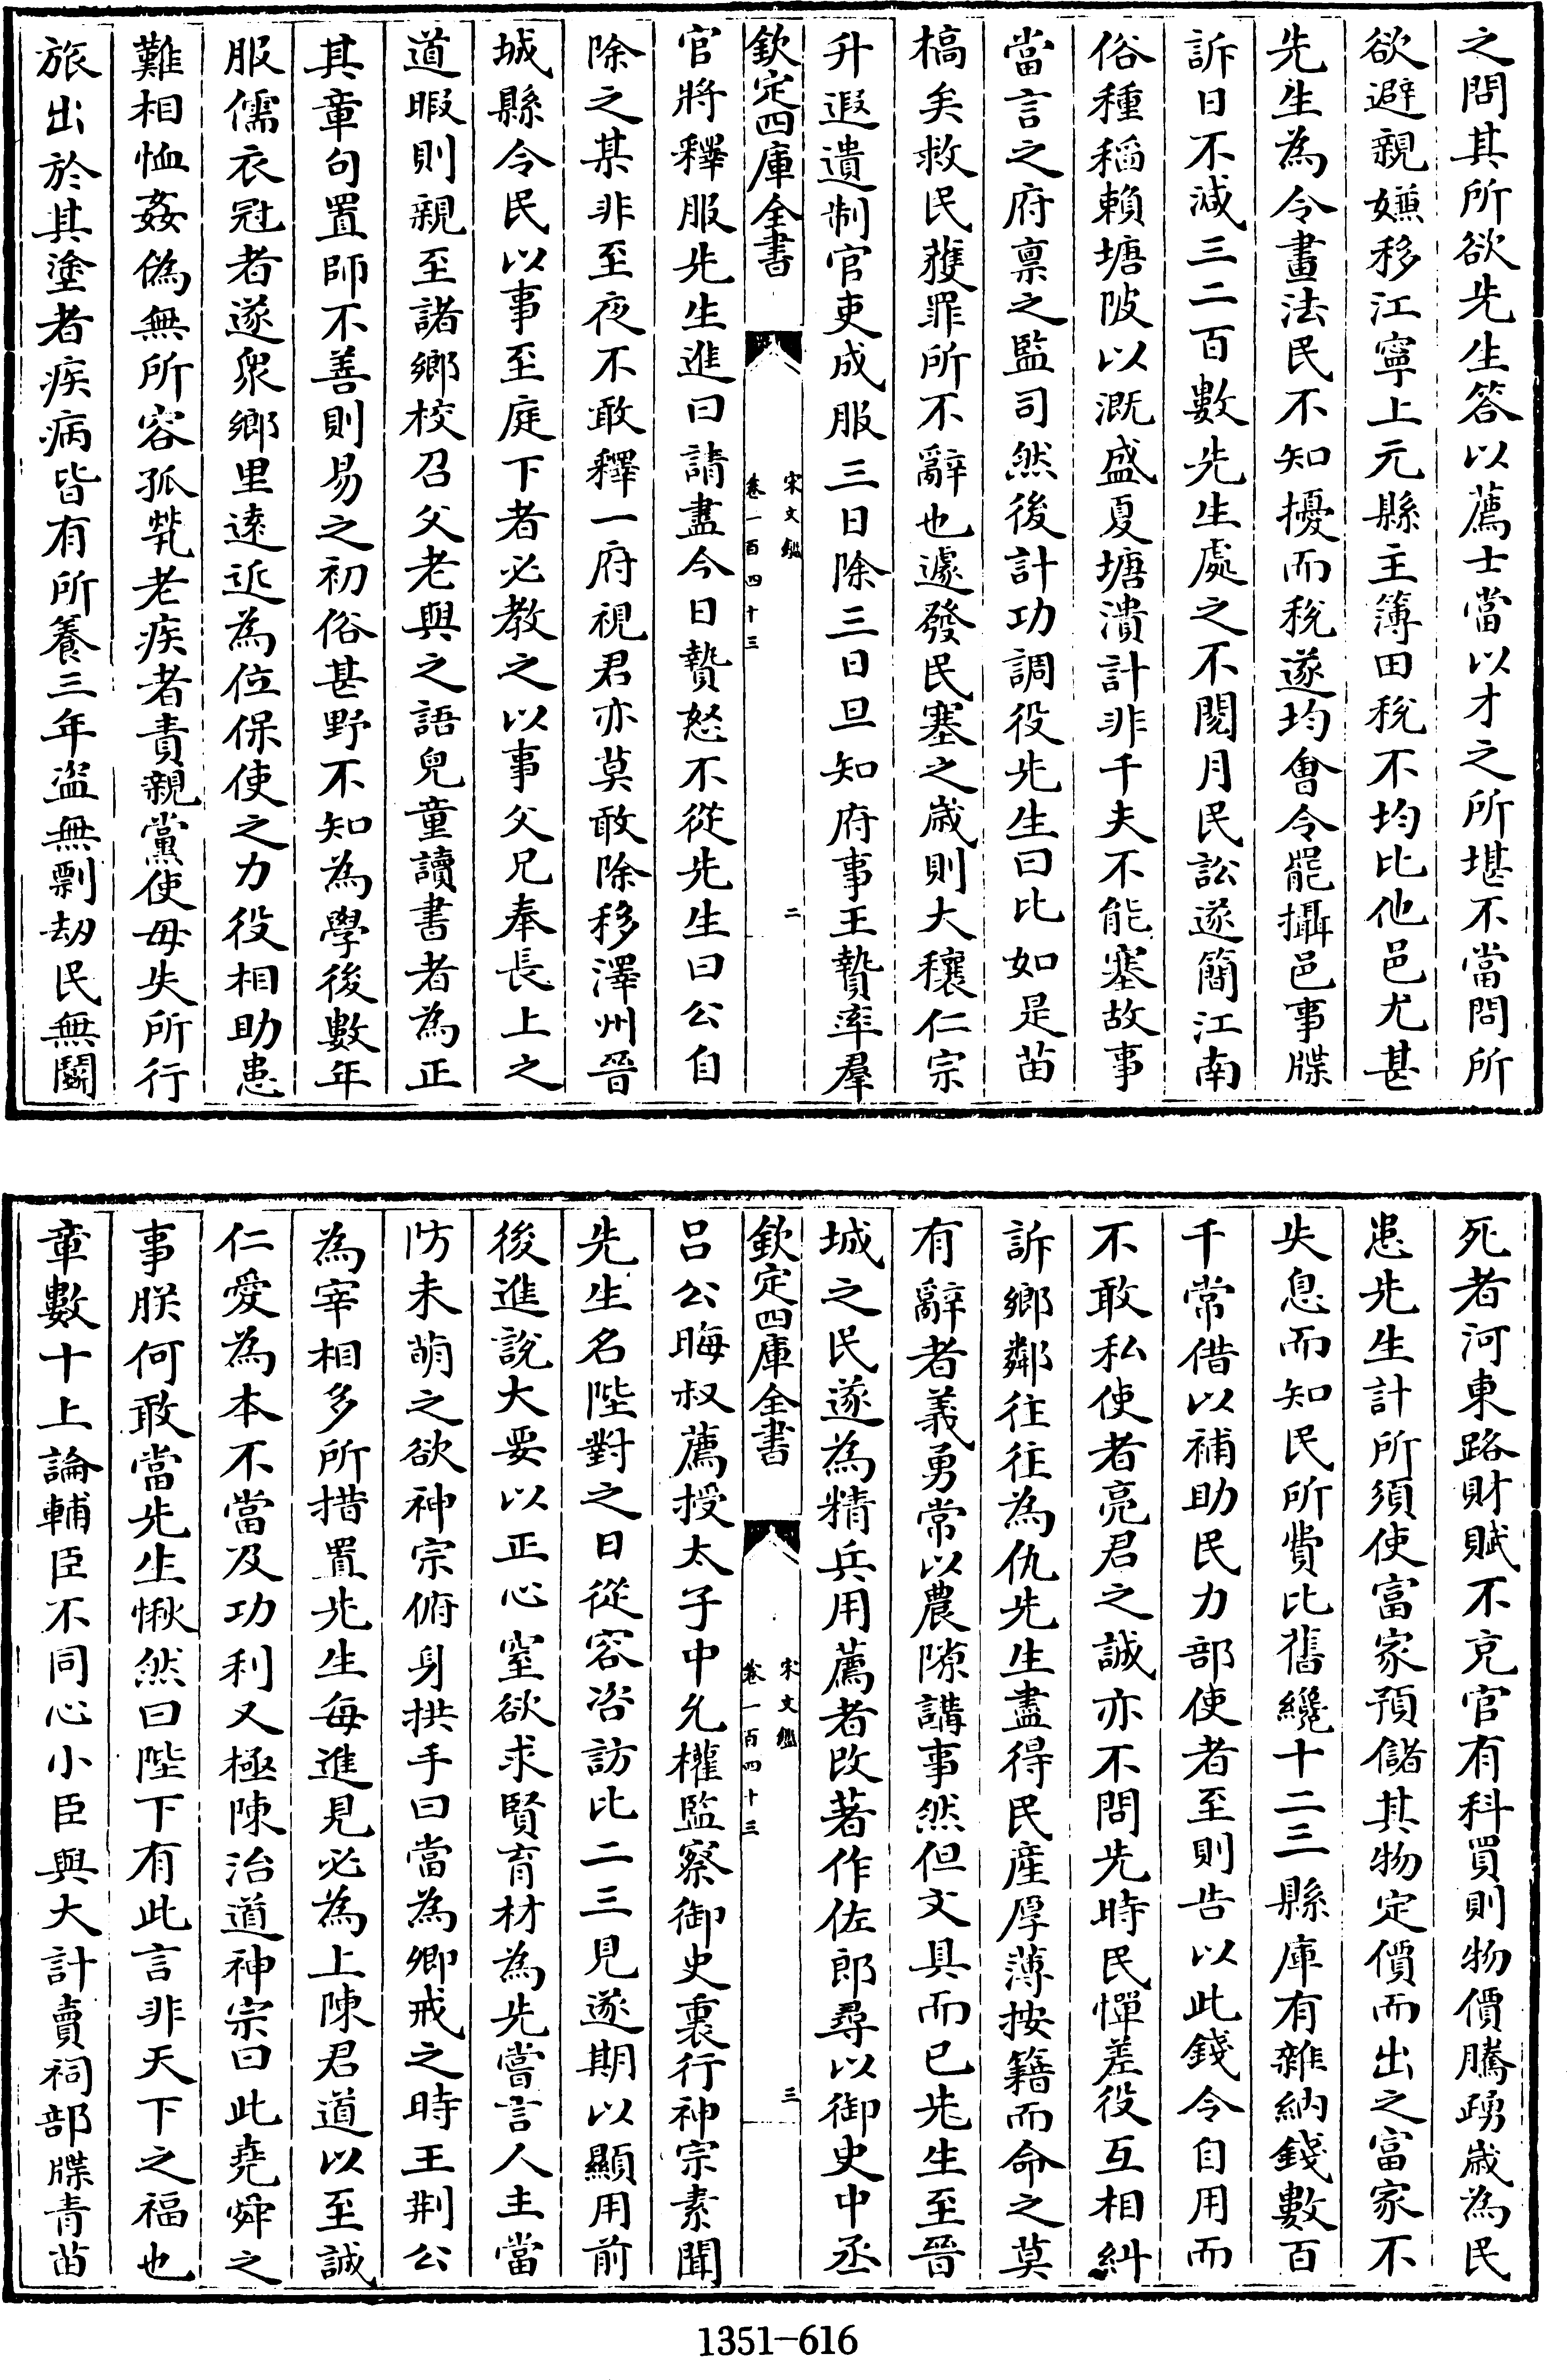 之問其所欲先生答以薦士當以才之所堪不當問所
欲避親嫌移江寧上元縣主簿田税不均比他邑尤甚
先生為令畫法民不知擾而税遂均㑹令罷攝邑事牒
訴日不減三二百數先生處之不閲月民訟遂簡江南
俗種稻賴塘陂以溉盛夏塘潰計非千夫不能塞故事
當言之府禀之監司然後計功調役先生曰比如是苗
槁矣救民獲罪所不辭也遽發民塞之歳則大穰仁宗
升遐遺制官吏成服三日除三日旦知府事王贄率羣
欽定四庫全書
宋文鑑
卷一百四十三
二
官將釋服先生進曰請盡今日贄怒不從先生曰公自
除之某非至夜不敢釋一府視君亦莫敢除移澤州晉
城縣令民以事至庭下者必教之以事父兄奉長上之
道暇則親至諸鄉校召父老與之語兒童讀書者為正
其章句置師不善則易之初俗甚野不知為學後數年
服儒衣冠者遂衆鄉里逺近為位保使之力役相助患
難相恤姦偽無所容孤煢老疾者責親黨使毋失所行
旅出於其塗者疾病皆有所養三年盗無剽劫民無鬬
死者河東路財賦不充官有科買則物價騰踴歳為民
患先生計所須使富家預儲其物定價而出之富家不
失息而知民所費比舊纔十二三縣庫有雜納錢數百
千常借以補助民力部使者至則告以此錢令自用而
不敢私使者亮君之誠亦不問先時民憚差役互相糾
訴鄉鄰往往為仇先生盡得民産厚薄按籍而命之莫
有辭者義勇常以農隙講事然但文具而已先生至晉
城之民遂為精兵用薦者改著作佐郎尋以御史中丞
欽定四庫全書
宋文鑑
卷一百四十三
三
吕公晦叔薦授太子中允權監察御史裏行神宗素聞
先生名陛對之日從容咨訪比二三見遂期以顯用前
後進說大要以正心窒欲求賢育材為先嘗言人主當
防未萌之欲神宗俯身拱手曰當為卿戒之時王荆公
為宰相多所措置先生每進見必為上陳君道以至誠
仁愛為本不當及功利又極陳治道神宗曰此堯舜之
事朕何敢當先生愀然曰陛下有此言非天下之福也
章數十上論輔臣不同心小臣與大計賣祠部牒青苗
1351-616